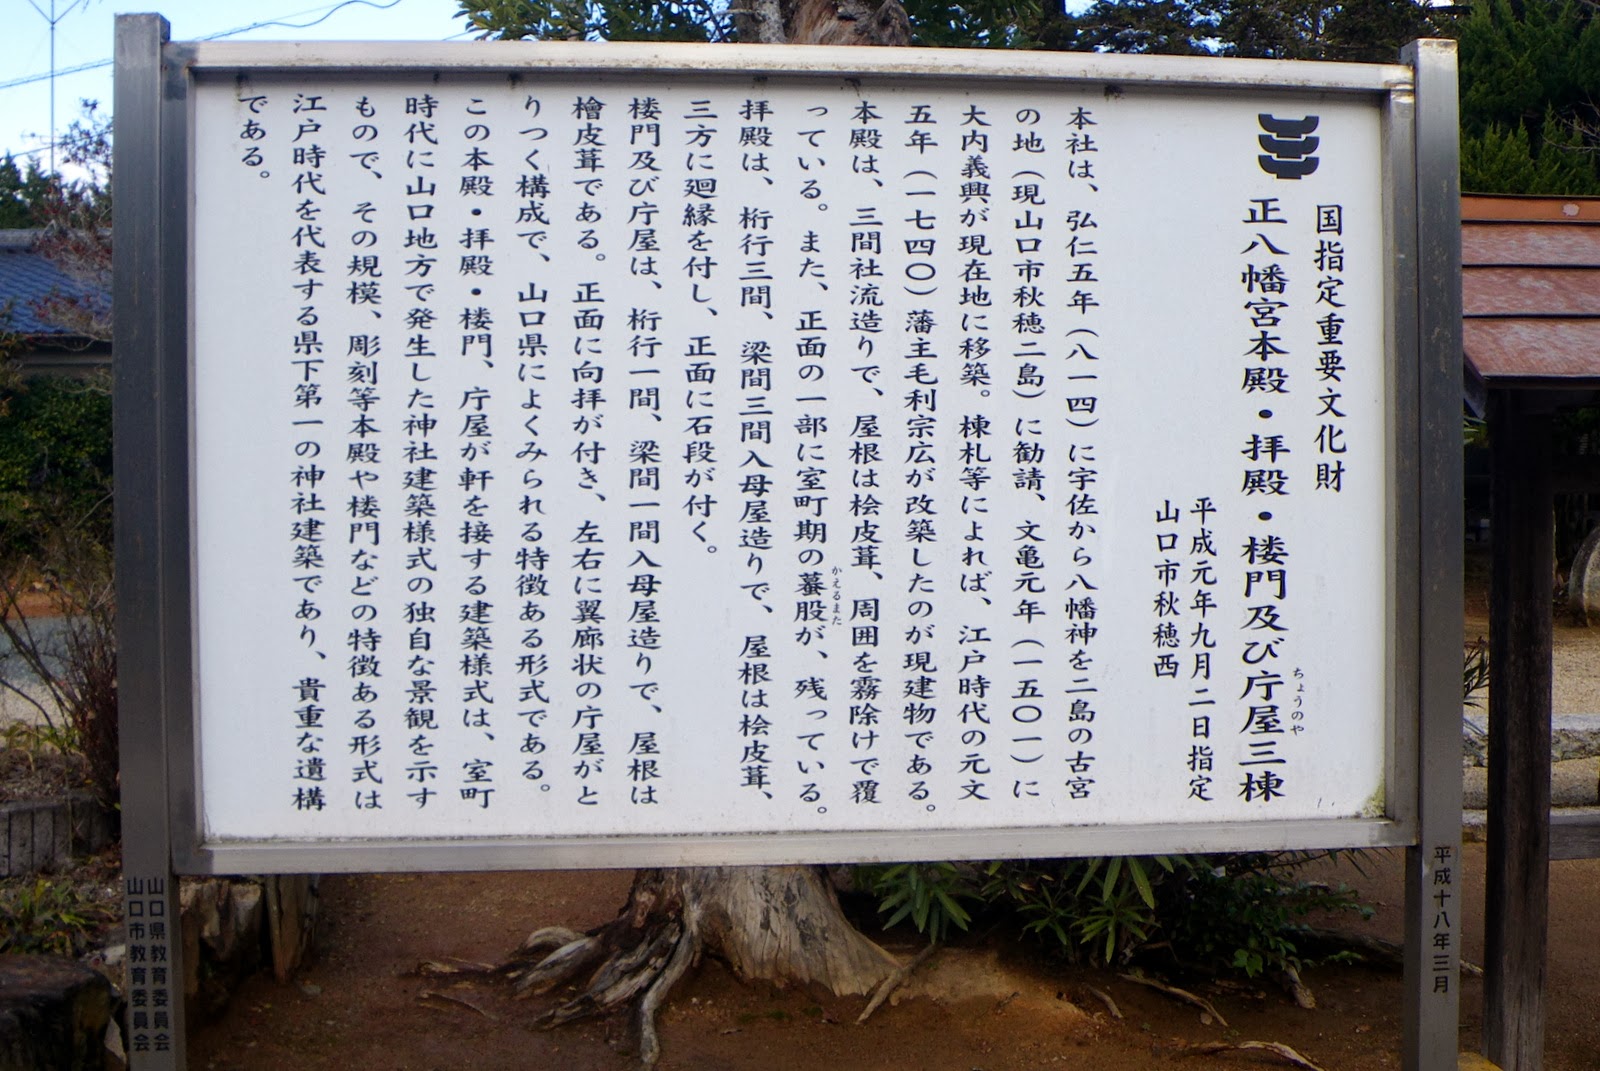 国指定重要文化財
正八幡宮本殿・拝殿・楼門及び庁屋三棟
ちょうのや
平成元年九月二日指定
山口市秋穂西
本社は、弘仁五年（八一四）に宇佐から八幡神を二島の古宮
の地（現山口市秋穂二島）に勧請、文亀元年（一五〇一）に
大内義興が現在地に移築。棟札等によれば、江戸時代の元文
五年（一七四〇）藩主毛利宗広が改築したのが現建物である。
本殿は、三間社流造りで、屋根は桧皮葺、周囲を霧除けで覆
っている。また、正面の一部に室町期の蟇股が、残っている。
かえるまた
拝殿は、桁行三間、梁間三間入母屋造りで、屋根は桧皮葺、
三方に廻縁を付し、正面に石段が付く。
楼門及び庁屋は、桁行一間、梁間一間入母屋造りで、屋根は
檜皮葺である。正面に向拝が付き、左右に翼廊状の庁屋がと
りつく構成で、山口県によくみられる特徴ある形式である。
この本殿・拝殿・楼門、庁屋が軒を接する建築様式は、室町
時代に山口地方で発生した神社建築様式の独自な景観を示す
もので、その規模、彫刻等本殿や楼門などの特徴ある形式は
江戸時代を代表する県下第一の神社建築であり、貴重な遺構
である。
平成十八年三月
山口県教育委員会
山口市教育委員会